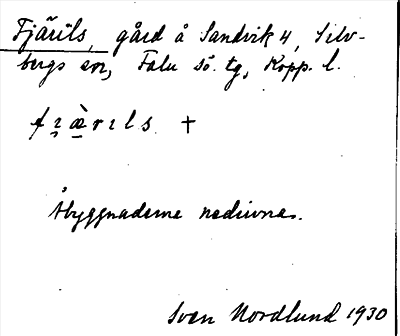 Fjärils, gård å Sandvik 4, Silv-
bergs sn, Falu sö. tg, Kopp. l.
fı̯æ̀rıls +
Åbyggnaderna nedrivna.
Sven Nordlund 1930